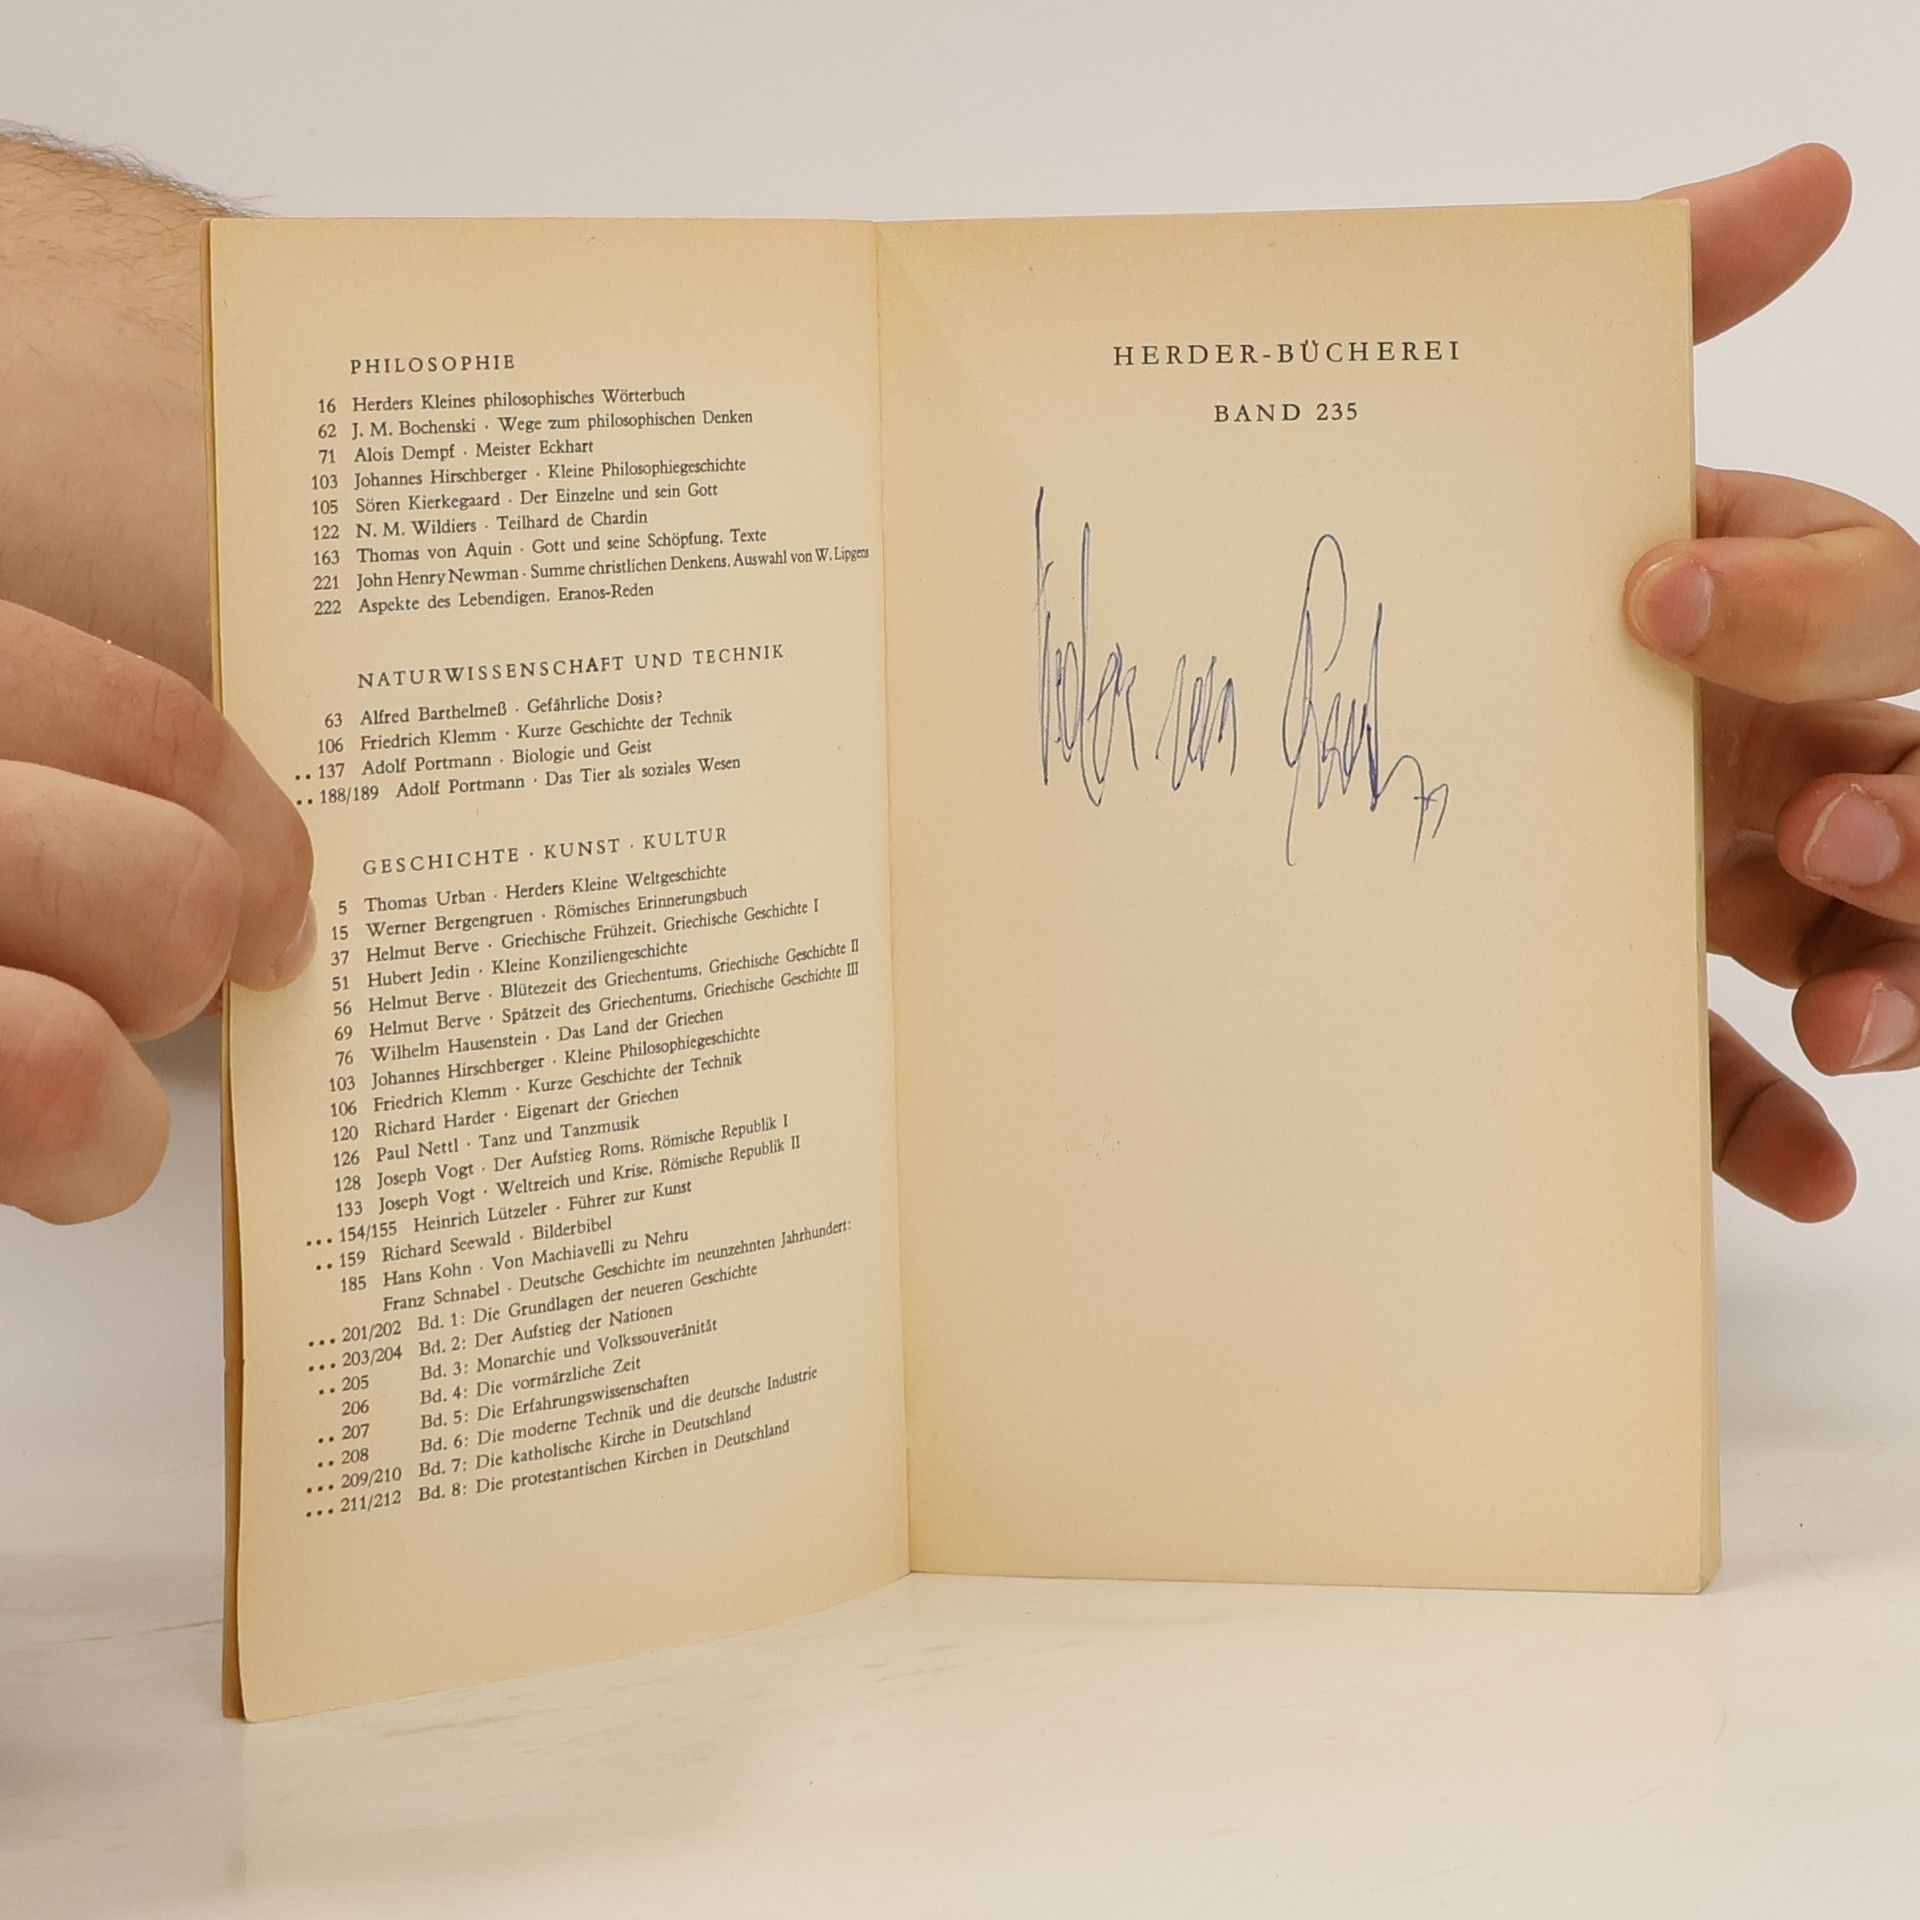 PHILOSOPHIE
16 Herders Kleines philosophisches Wörterbuch
62 J. M. Bochenski · Wege zum philosophischen Denken
71 Alois Dempf · Meister Eckhart
103 Johannes Hirschberger · Kleine Philosophiegeschichte
105 Sören Kierkegaard · Der Einzelne und sein Gott
122 N. M. Wildiers · Teilhard de Chardin
163 Thomas von Aquin · Gott und seine Schöpfung. Texte
221 John Henry Newman · Summe christlichen Denkens. Auswahl von W. Lipgens
222 Aspekte des Lebendigen. Eranos-Reden
NATURWISSENSCHAFT UND TECHNIK
63 Alfred Barthelmeß · Gefährliche Dosis?
106 Friedrich Klemm · Kurze Geschichte der Technik
•• 137 Adolf Portmann · Biologie und Geist
•• 188/189 Adolf Portmann · Das Tier als soziales Wesen
GESCHICHTE · KUNST · KULTUR
5 Thomas Urban · Herders Kleine Weltgeschichte
15 Werner Bergengruen · Römisches Erinnerungsbuch
37 Helmut Berve · Griechische Frühzeit. Griechische Geschichte I
51 Hubert Jedin · Kleine Konziliengeschichte
56 Helmut Berve · Blütezeit des Griechentums. Griechische Geschichte II
69 Helmut Berve · Spätzeit des Griechentums. Griechische Geschichte III
76 Wilhelm Hausenstein · Das Land der Griechen
103 Johannes Hirschberger · Kleine Philosophiegeschichte
106 Friedrich Klemm · Kurze Geschichte der Technik
120 Richard Harder · Eigenart der Griechen
126 Paul Nettl · Tanz und Tanzmusik
128 Joseph Vogt · Der Aufstieg Roms. Römische Republik I
133 Joseph Vogt · Weltreich und Krise. Römische Republik II
••• 154/155 Heinrich Lützeler · Führer zur Kunst
•• 159 Richard Seewald · Bilderbibel
185 Hans Kohn · Von Machiavelli zu Nehru
Franz Schnabel · Deutsche Geschichte im neunzehnten Jahrhundert:
••• 201/202 Bd. 1: Die Grundlagen der neueren Geschichte
••• 203/204 Bd. 2: Der Aufstieg der Nationen
•• 205 Bd. 3: Monarchie und Volkssouveränität
206 Bd. 4: Die vormärzliche Zeit
•• 207 Bd. 5: Die Erfahrungswissenschaften
•• 208 Bd. 6: Die moderne Technik und die deutsche Industrie
••• 209/210 Bd. 7: Die katholische Kirche in Deutschland
••• 211/212 Bd. 8: Die protestantischen Kirchen in Deutschland
HERDER-BÜCHEREI
BAND 235